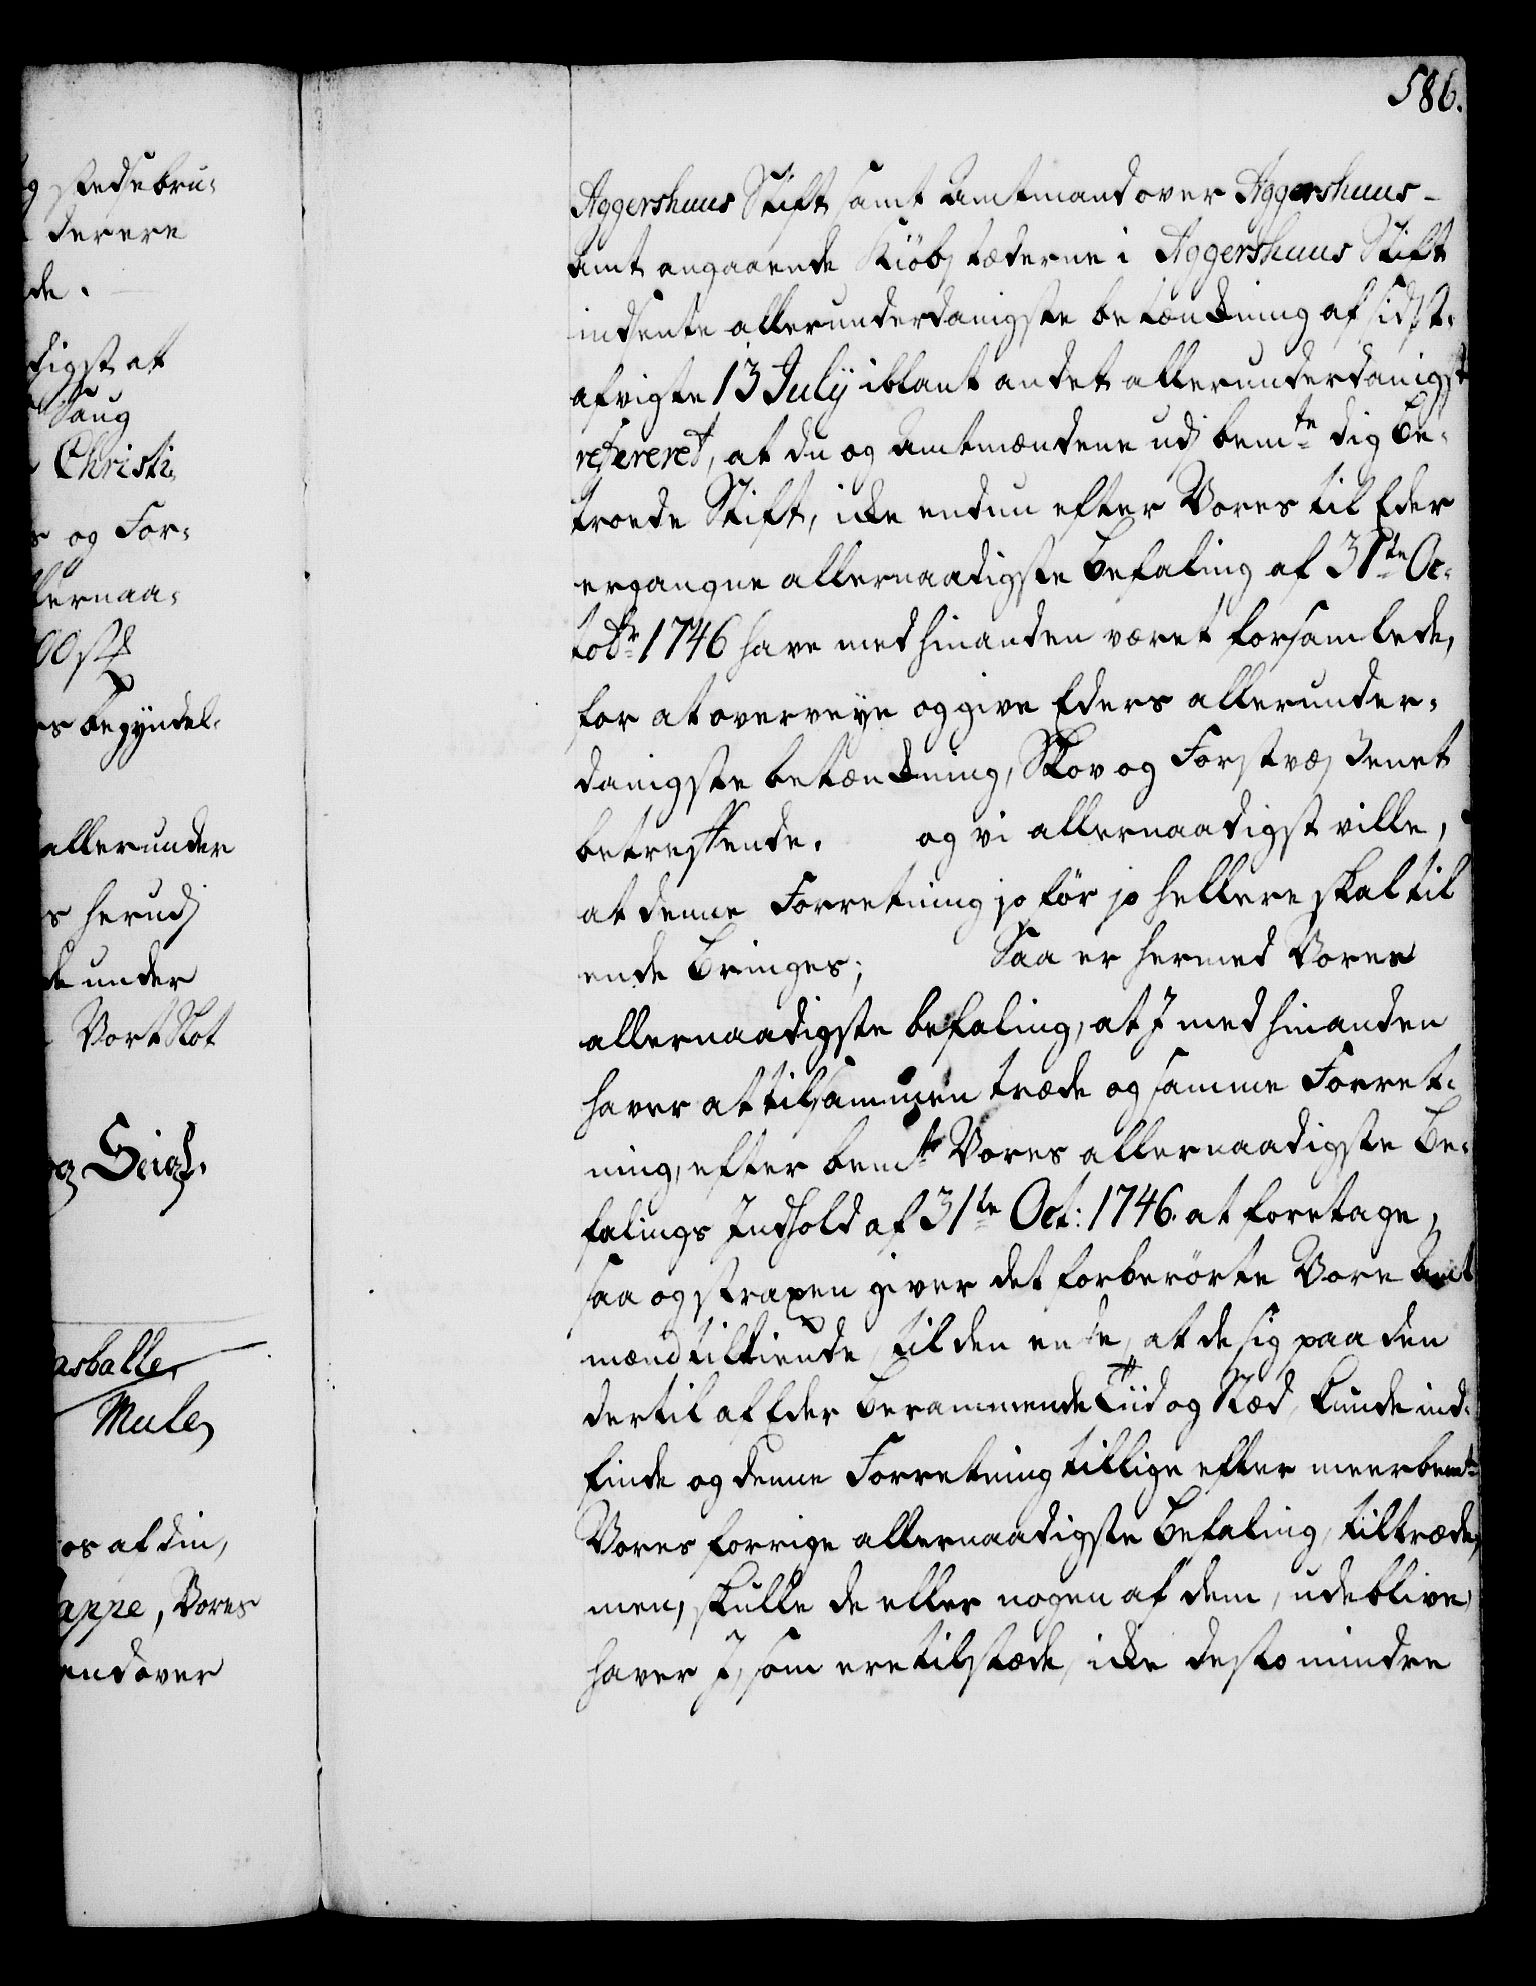 586.
g stedsebru-
derere
de.
digst at
Saug
Christi,
s og For-
lernaa-
00 sd
rs begyndel-
allerunder
s herudj
de under
Vort Slot
og Seigl.
asballe,
Mule,
os af din,
appe, Vores
andover
Aggershuus Stift samt Amtmand over Aggershuus-
Amt angaaende Kiøbstæderne i Aggershuus Stift
indsente allerunderdanigste betænckning af sidst-
afvigte 13 Julij iblant andet allerunderdanigst
refereret, at du og Amtmændene udj bemte dig Be-
troede Stift, icke endnu efter Vores til Eder
ergangne allernaadigste Befaling af 31te Oc-
tobr 1746 have med hinanden været forsamlede,
for at overveye og give Eders allerunder-
danigste betænckning, Skov og Forstvæsenet
betreffende. og vi allernaadigst ville,
at denne Forretning jo før jo hellere skal til
ende Bringes; Saa er hermed Vores
allernaadigste befaling, at I med hinanden
haver at tilsammen træde og samme Forret-
ning, efter bemte Vores allernaadigste Be-
falings Indhold af 31te Oct: 1746. at foretage,
saa og straxen giver det forberørte Vore Amt
mænd tilkiende, til den ende, at de sig paa den
dertil af Eder Berammende Tiid og Stæd, kunde ind-
finde og denne Forretning tillige efter meerbemte
Vores forrige allernaadigste Befaling, tiltræde,
men, skulle de eller nogen af dem, udeblive,
haver I, som ere tilstæde, icke desto mindre